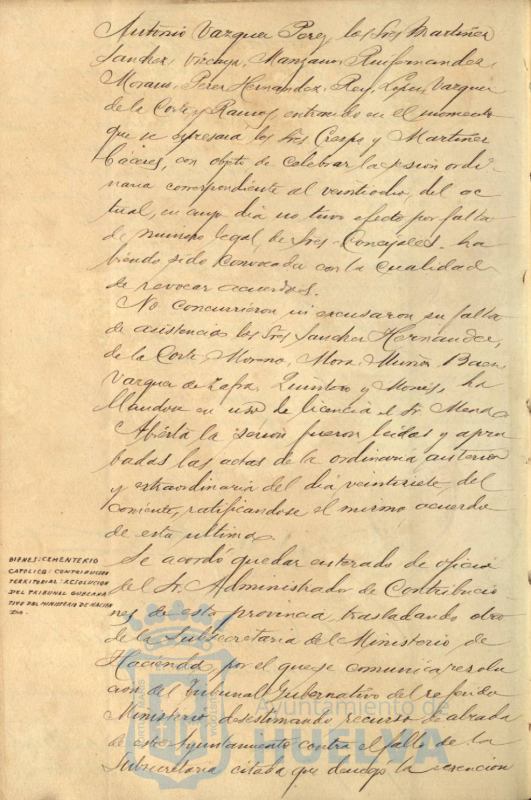 Antonio Vazquez Perez, los Sres Martinez
Sanchez, Vizcaya, Manzano, Ruifernandez,
Moreno, Perez Hernandez, Rey, Lopez, Vazquez
de la Corte y Ramos, entrando en el momento
que se espresará los Sres Crespo y Martinez
Cáceres, con objeto de celebrar la sesión ordi-
naria correspondiente al veintiocho del ac-
tual, en cuyo dia no tuvo efecto por falta
de numero legal de Sres. Concejales, ha
biendo sido convocada con la cualidad
de revocar acuerdos.
No concurrieron ni excusaron su falta
de asistencia los Sres Sanchez Hernandez,
de la Corte Moreno, Mora, Muñoz, Baena
Vazquez de Zafra, Quintero y Mones, ha
llandose en uso de licencia el Sr.
Abierta la sesión fueron leidas y apro
badas las actas de la ordinaria anterior
y extraordinaria del dia veintisiete del
corriente, ratificandose el mismo acuerdo
de esta ultima.
BIENES: CEMENTERIO
CATOLICO: CONTRIBUCION
TERRITORIAL: RESOLUCION
DEL TRIBUNAL GUBERNA
TIVO DEL MINISTERIO DE HACIEN
DA.
Se acordó quedar enterado de oficio
del Sr. Administrador de Contribucio
nes de esta provincia, trasladando otro
de la Subsecretaria del Ministerio de
Hacienda por el que se comunica resolu
cion del Tribunal Gubernativo del referido
Ministerio, desestimando recurso de alzada
de este Ayuntamiento contra el fallo de la
Subsecretaria citada que denegó la exencion
Ayuntamiento de
HUELVA